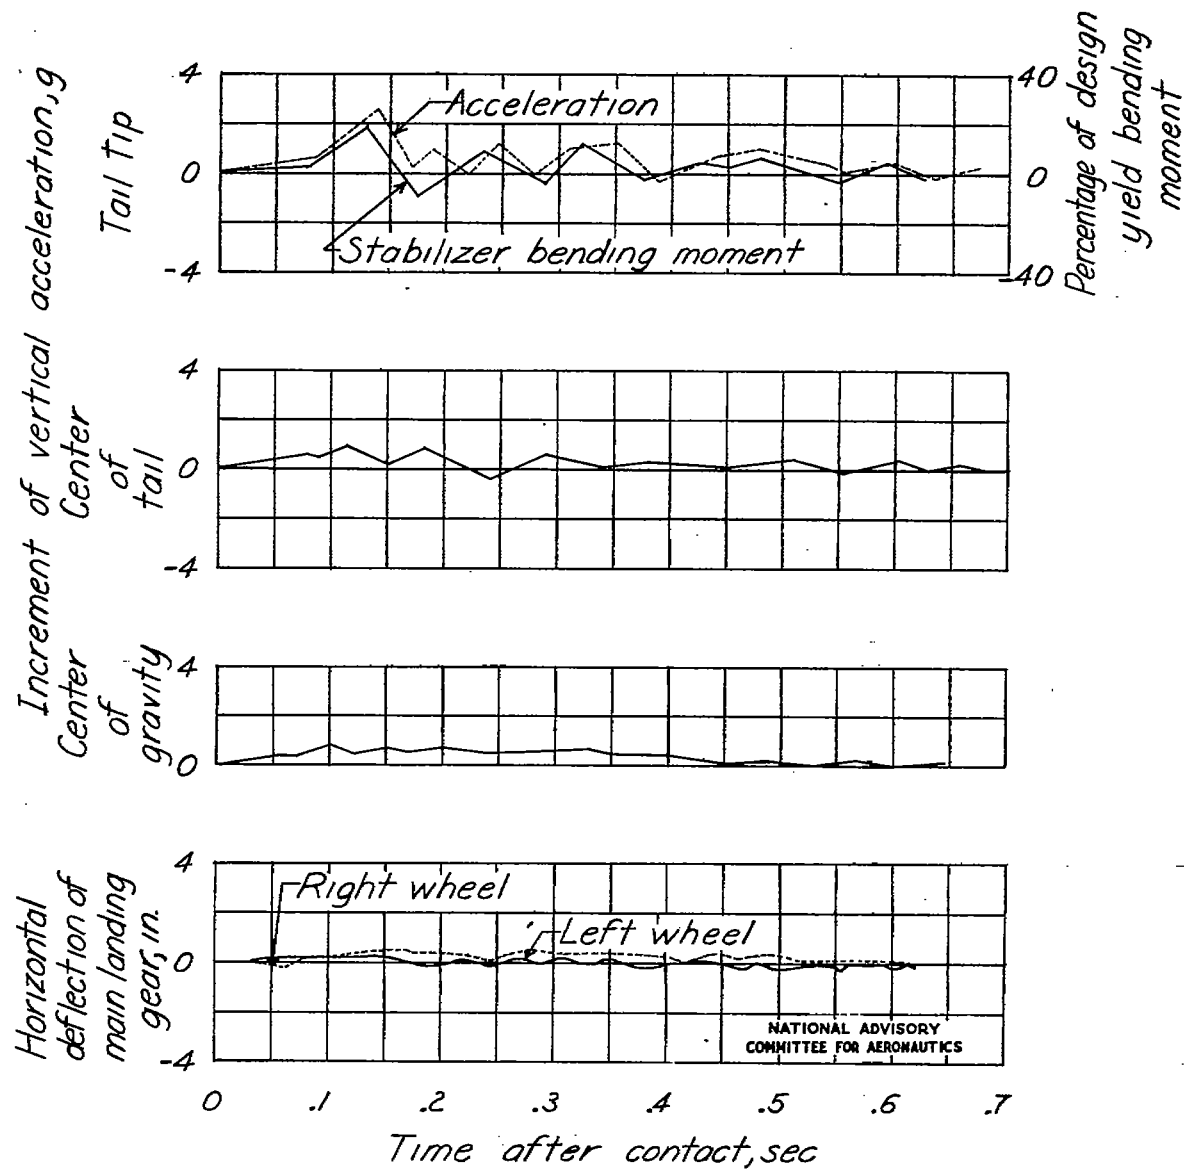 Increment of vertical acceleration, g
Tail tip
4
0
-4
Acceleration
Stabilizer bending moment
40
0
-40
Percentage of design
yield bending
moment
Center
of
tail
4
0
-4
Center
of
gravity
4
0
Horizontal
deflection of
main landing
gear, in.
4
0
-4
Right wheel
Left wheel
NATIONAL ADVISORY
COMMITTEE FOR AERONAUTICS
0 .1 .2 .3 .4 .5 .6 .7
Time after contact, sec